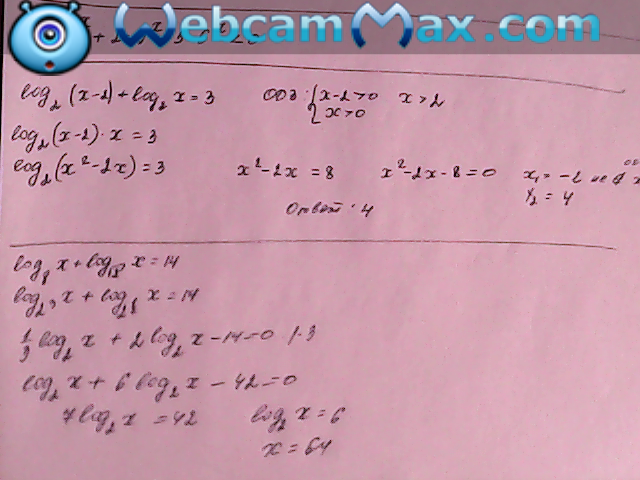 WebcamMax.com
log₂(x-2)+log₂ x = 3 ОДЗ: { x-2>0 x>2
x>0
log₂(x-2)·x = 3
log₂(x²-2x) = 3 x²-2x = 8 x²-2x-8=0 x₁= -2 не
x₂ = 4
Ответ: 4
log₈ x + log x = 14
log₂³ x + log x = 14
1/3 log₂ x + 2 log₂ x - 14=0 |·3
log₂ x + 6 log₂ x - 42 = 0
7 log₂ x = 42 log₂ x = 6
x = 64